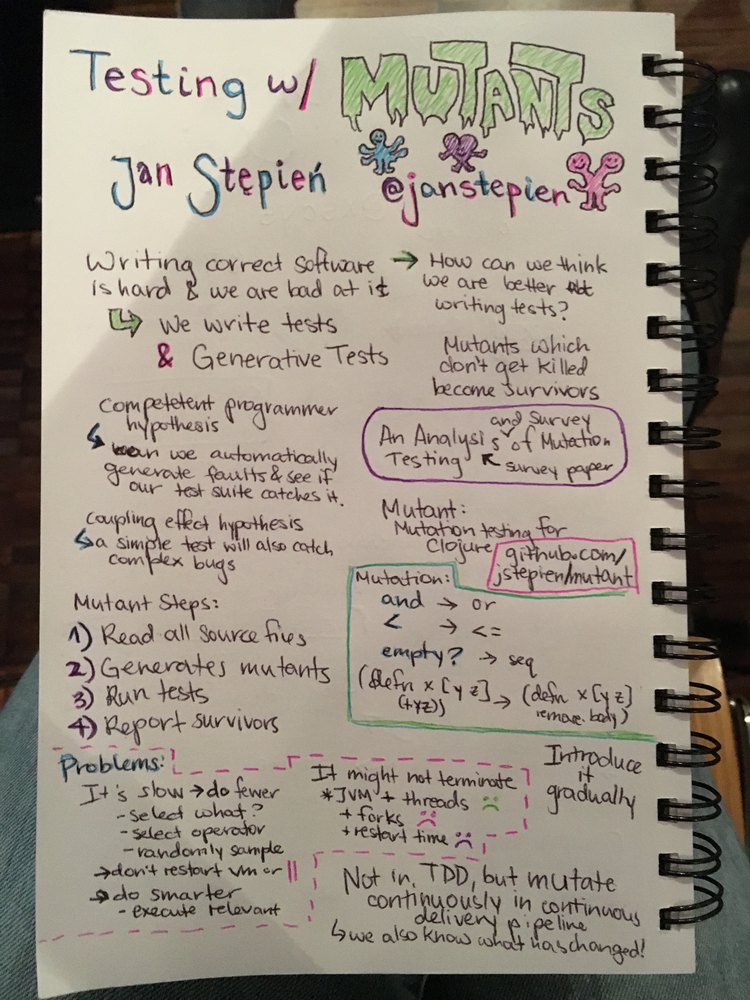 Testing w/ MUTANTS
Jan Stępień @janstepien
Writing correct software
is hard & we are bad at it
↳ we write tests
& Generative Tests
→ How can we think
we are better at
writing tests?
Mutants which
don't get killed
become survivors
Competetent programmer
hypothesis
↳ can we automatically
generate faults & see if
our test suite catches it.
An Analysis and survey of Mutation
Testing ↖ survey paper
Coupling effect hypothesis
↳ a simple test will also catch
complex bugs
Mutant:
Mutation testing for
Clojure
github.com/
jstepien/mutant
Mutant Steps:
1) Read all source files
2) Generates mutants
3) Run tests
4) Report survivors
Mutation:
and → or
< → <=
empty? → seq
(defn x [y z] → (defn x [y z]
(+yz)) remove.body)
Problems:
It's slow → do fewer
- select what?
- select operator
- randomly sample
→ don't restart vm or ||
→ do smarter
- execute relevant
It might not terminate
* JVM + threads
+ forks
+ restart time
Introduce
it
gradually
Not in TDD, but mutate
continuously in continuous
delivery pipeline
↳ we also know what has changed!